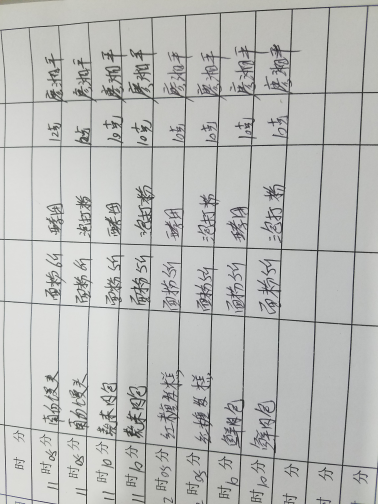 时 分
11时05分 南瓜馒头 面粉6斤 酵母 12克 廖湘平
11时05分 南瓜馒头 面粉6斤 泡打粉 廖湘平
11时10分 肉包 面粉5斤 酵母 10克 廖湘平
11时10分 肉包 面粉5斤 泡打粉 10克 廖湘平
2时05分 红糖发糕 面粉5斤 酵母 10克 廖湘平
2时05分 红糖发糕 面粉5斤 泡打粉 10克 廖湘平
时10分 鲜肉包 面粉5斤 酵母 10克 廖湘平
时10分 鲜肉包 面粉5斤 泡打粉 10克 廖湘平
时 分
时 分
时 分